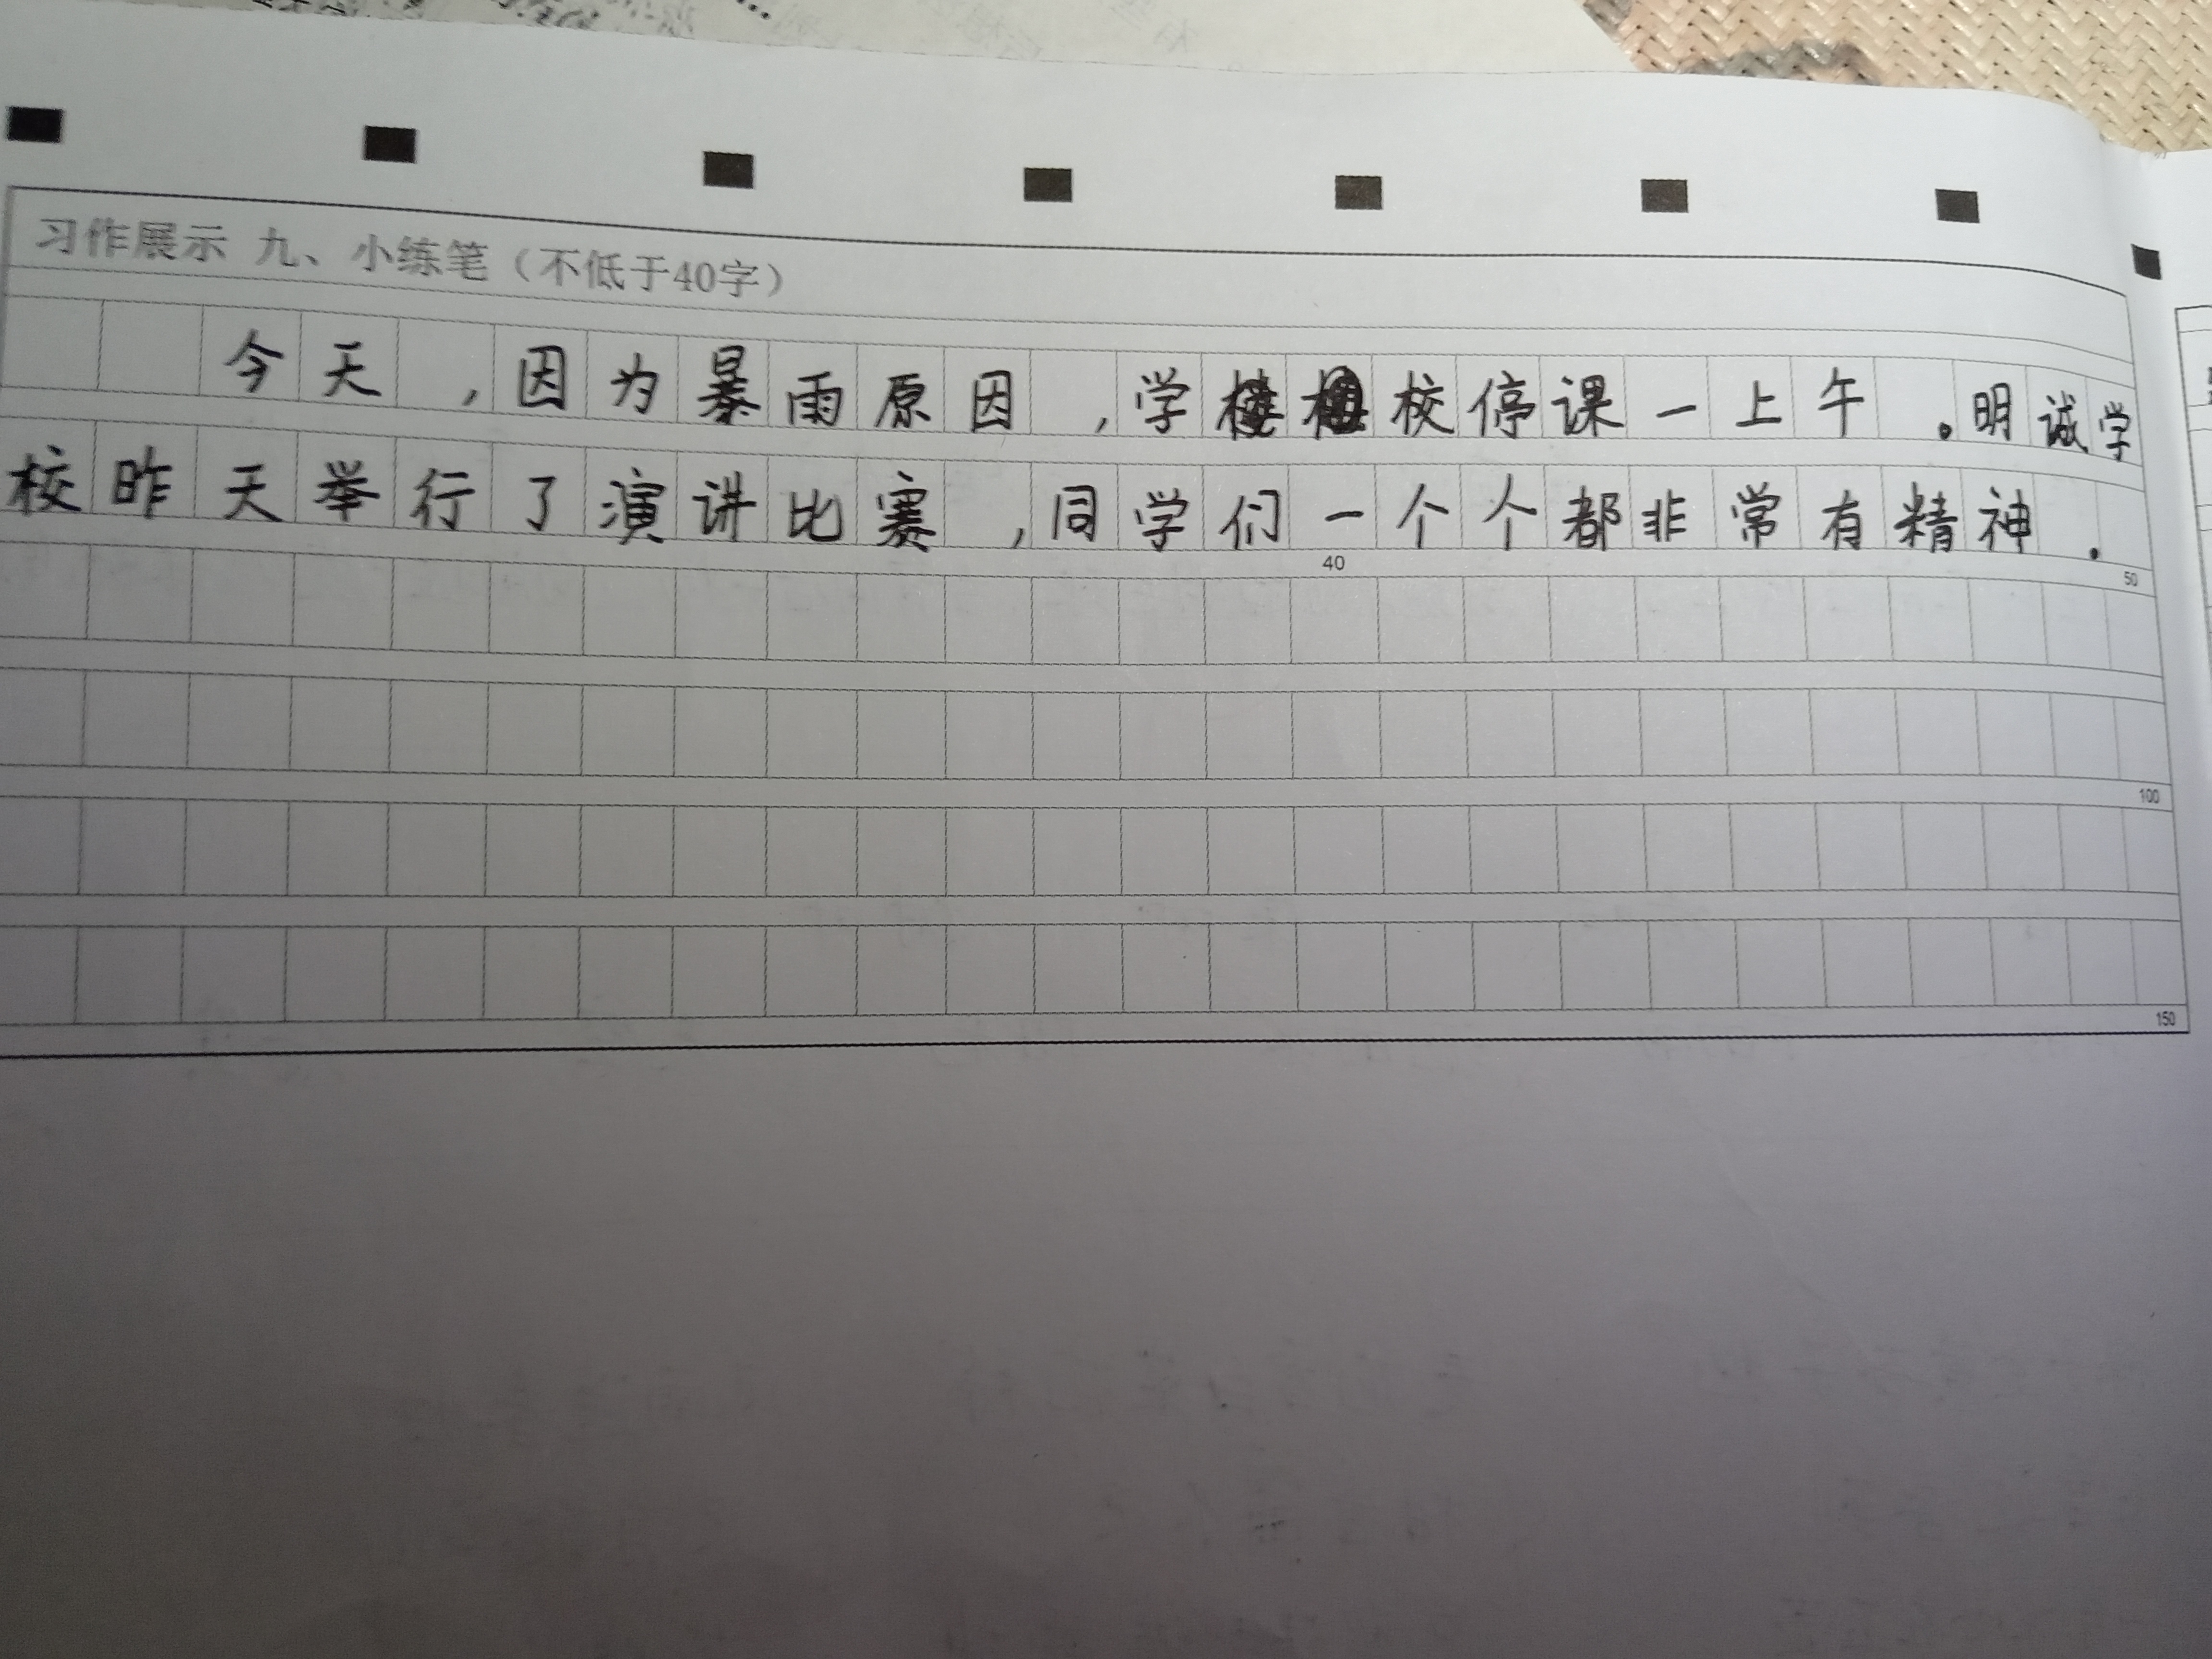 习作展示 九、小练笔（不低于40字）
今天，因为暴雨原因，学校停课一上午。明诚学
校昨天举行了演讲比赛，同学们一个个都非常有精神.
40
50
100
150